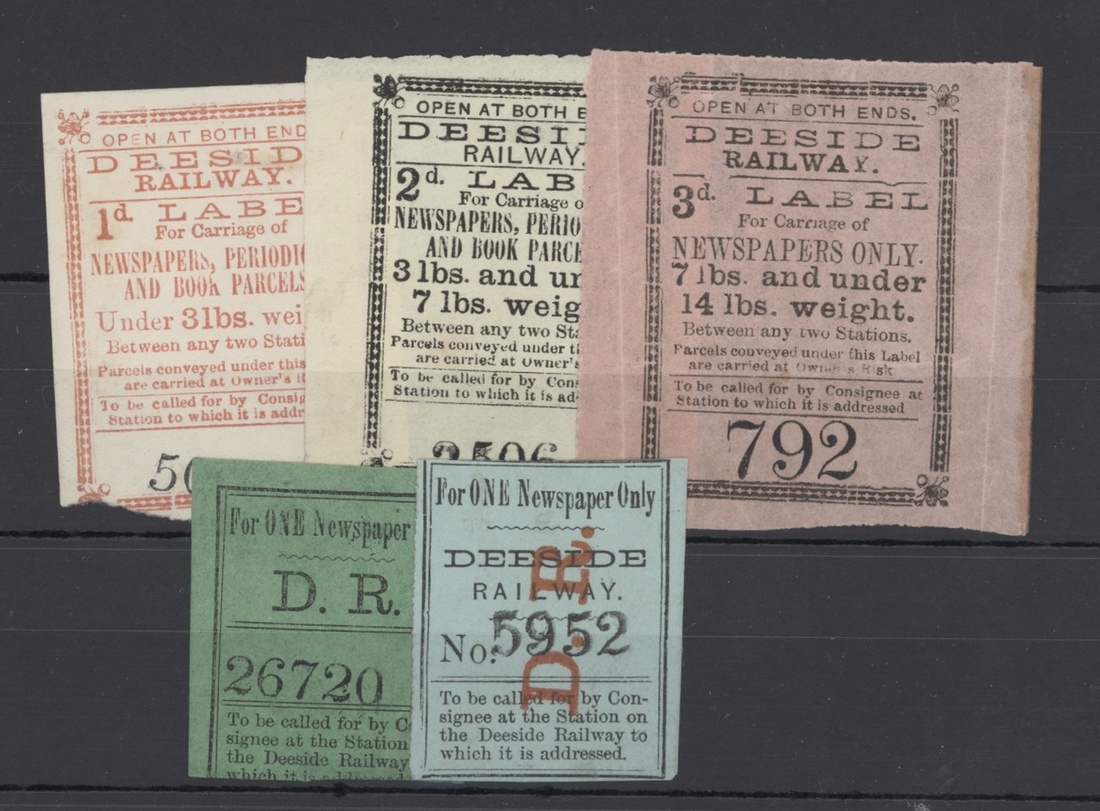 OPEN AT BOTH END
DEESID
RAILWAY.
1d LABE
For Carriage of
NEWSPAPERS, PERIODIC
AND BOOK PARCELS
Under 3lbs. wei
Between any two Stati
Parcels conveyed under this
are carried at Owner's R
To be called for by Consig
Station to which it is addr
50
OPEN AT BOTH E
DEESI
RAILWAY.
2d. LAB
For Carriage o
NEWSPAPERS, PERIO
AND BOOK PARCE
3 lbs. and un
7 lbs. weig
Between any two Sta
Parcels conveyed under t
are carried at Owner's
To be called for by Con
Station to which it is ad
3506
OPEN AT BOTH ENDS.
DEESIDE
RAILWAY.
3d. LABEL
For Carriage of
NEWSPAPERS ONLY.
7 lbs. and under
14 lbs. weight.
Between any two Stations.
Parcels conveyed under this Label
are carried at Owner's Risk
To be called for by Consignee at
Station to which it is addressed
792
For ONE Newspaper
D. R.
26720
To be called for by C
signee at the Station
the Deeside Railway
which it is addressed
For ONE Newspaper Only
DEESIDE
RAILWAY.
No. 5952
D. R.
To be called for by Con-
signee at the Station on
the Deeside Railway to
which it is addressed.